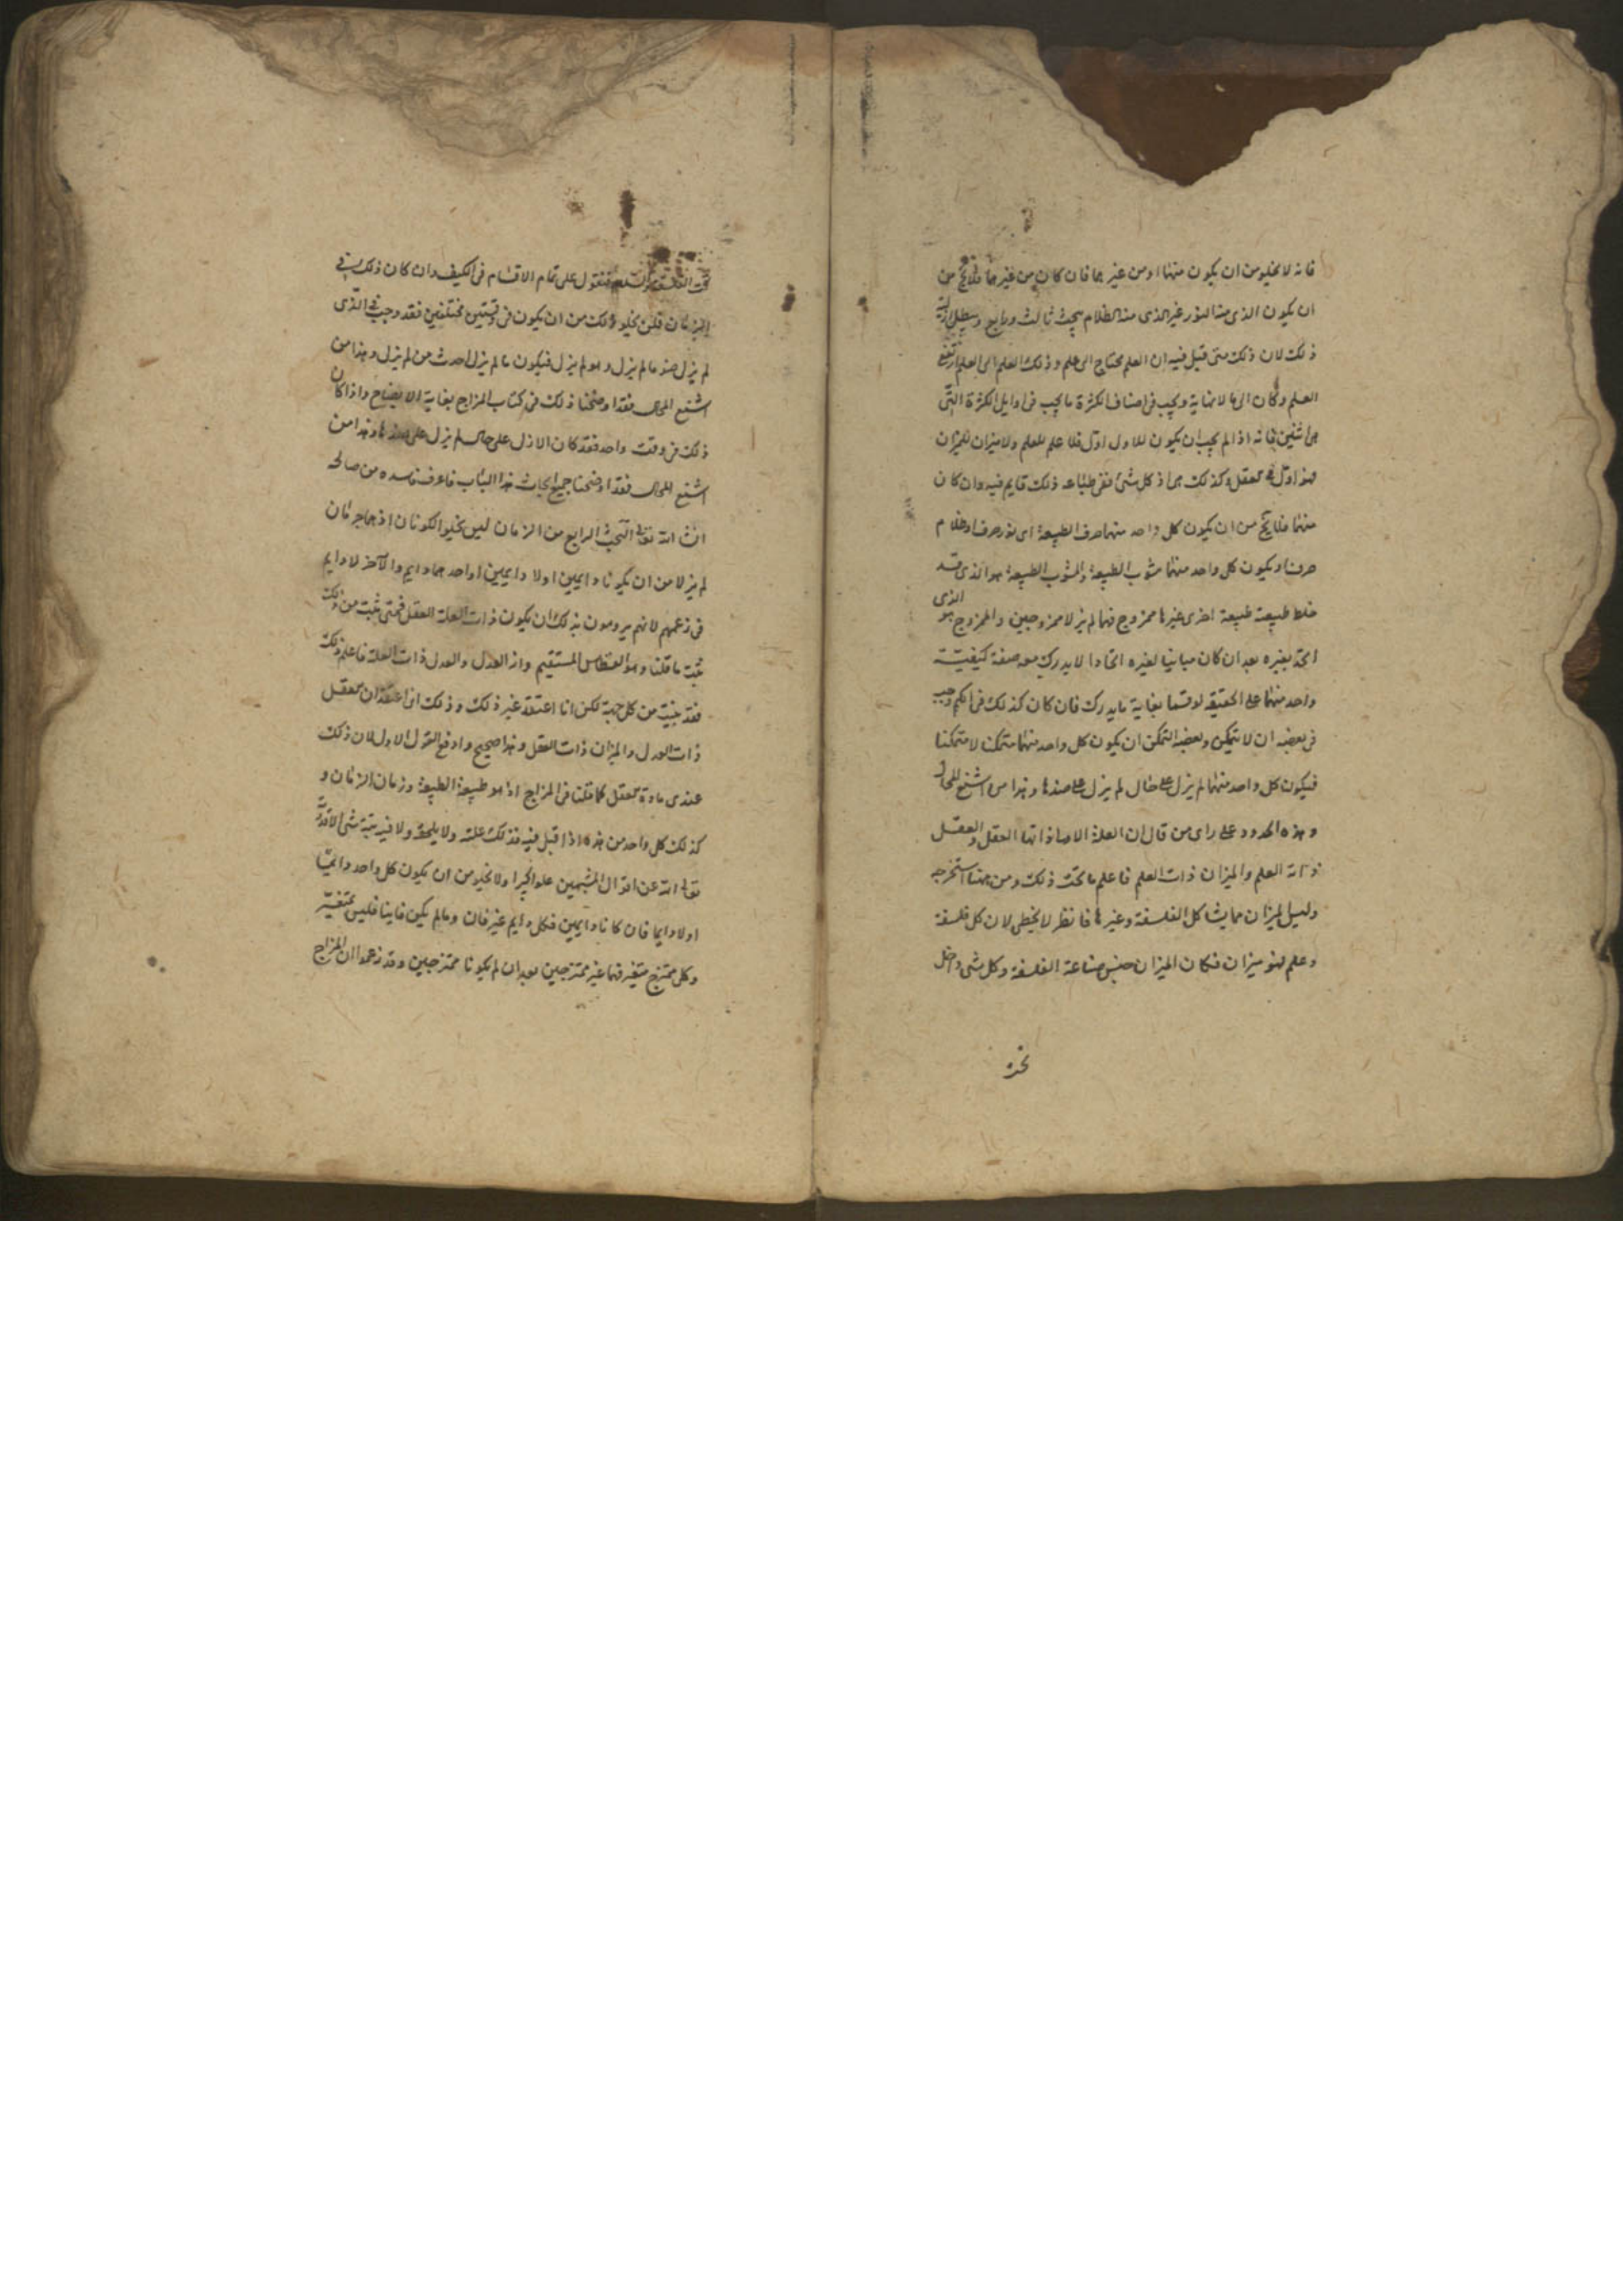 فانه لا يخلو من ان يكون منهما او من غيرهما فان كان من غيرهما فلا يخ من
ان يكون الذى منه النور غير الذى منه الظلام بحث ثالث ورابع ويبطل
ذلك لان ذلك متى قيل فيه ان العلم محتاج الى علم وذلك العلم الى العلم ارتفع
العلم وكان الى ما لا نهاية ويجب فى اصناف الكثرة ما يجب فى اوايل الكثرة التى
هى اثنين فانه اذا لم يجب ان يكون للاول اول فلا علم للعلم ولا ميزان للميزان
فهذا اول فى العقل وكذلك هى اذ كل شئ ففى طباعه ذلك قايم فيه وان كان
منهما فلا يخ من ان يكون كل واحد منهما صرف الطبيعة اى نور صرف او ظلام
صرف او يكون كل واحد منهما مشوب الطبيعة والمشوب الطبيعة هو الذى قد
خلط طبيعته طبيعة اخرى غيرها ممزوج فهما لم يزلا ممزوجين والممزوج هو الذى
اتحد بغيره بعد ان كان مباينا لغيره اتحادا لا يدرك معه صفة كيفية
واحد منهما على الحقيقة لوقتها بغاية ما يدرك فان كان كذلك فى الكم وجب
فى بعضه ان لا تمكن وبعضه التمكن ان يكون كل واحد منهما متمكنا لا متمكنا
فيكون كل واحد منهما لم يزل على حال لم يزل على ضدها وهذا من اشنع المحال
وهذه الحدود على راى من قال ان العلة الاصلذاتها العقل والعقل
ذاته العلم والميزان ذات العلم فاعلم ما تحت ذلك ومن ههنا استخرجه
وليس الميزان مما يشاكل الفلسفة وغيرها فانظر لا يخطى لان كل فلسفة
وعلم فهو ميزان فكان الميزان جنس صناعة الفلسفة وكل شى داخل
تحت
تحت الفلسفة فنقول على تمام الاقسام فى الكيف وان كان ذلك فى
الزمان فلن يخلو ذلك من ان يكون فى وقتين مختلفين فقد وجب فى الذى
لم يزل ضد ما لم يزل وهو لم يزل فيكون ما لم يزل احدث من لم يزل وهذا من
اشنع المحال فقد اوضحنا ذلك فى كتاب المزاج بغاية الايضاح واذا كان
ذلك فى وقت واحد فقد كان الازل على حال لم يزل على ضدها وهذا من
اشنع المحال فقد اوضحنا جميع ابحاث هذا الباب فاعرف فاسده من صالحه
انشا الله تعالى البحث الرابع من الزمان ليس يخلو الكونان اذ هما جرمان
لم يزلا من ان يكونا دايمين او لا دايمين او احدهما دايم والاخر لا دايم
فى زعمهم لانهم يرومون بذلك ان يكون ذات العلة العقل فمتى ثبت من ذلك
ثبت ما قلنا وهو القسطاس المستقيم وانه العدل والعدل ذات العلة فاعلم ذلك
فقد بينته من كل جهة لكن انا اعتقد غير ذلك وذلك انى اعتقد ان العقل
ذات العدل والميزان ذات العقل وهذا صحيح وادفع القول الاول لان ذلك
عندى مادة العقل كما قلنا فى المزاج اذ هو طبيعة الطبيعة وزمان الزمان و
كذلك كل واحد من هذه اذا قيل فيه فذلك علته ولا يلحقه ولا فيه بتة شى الا قدرة
تعالى الله عن اقوال المشبهين علوا كبيرا ولا يخلو من ان يكون كل واحد دائما
او لا دايما فان كانا دايمين فكل دايم غير فان وما لم يكن فانيا فليس بمتغير
وكل ممتزج متغير فهما غير ممتزجين بعد ان لم يكونا ممتزجين وقد زعموا ان المزاج